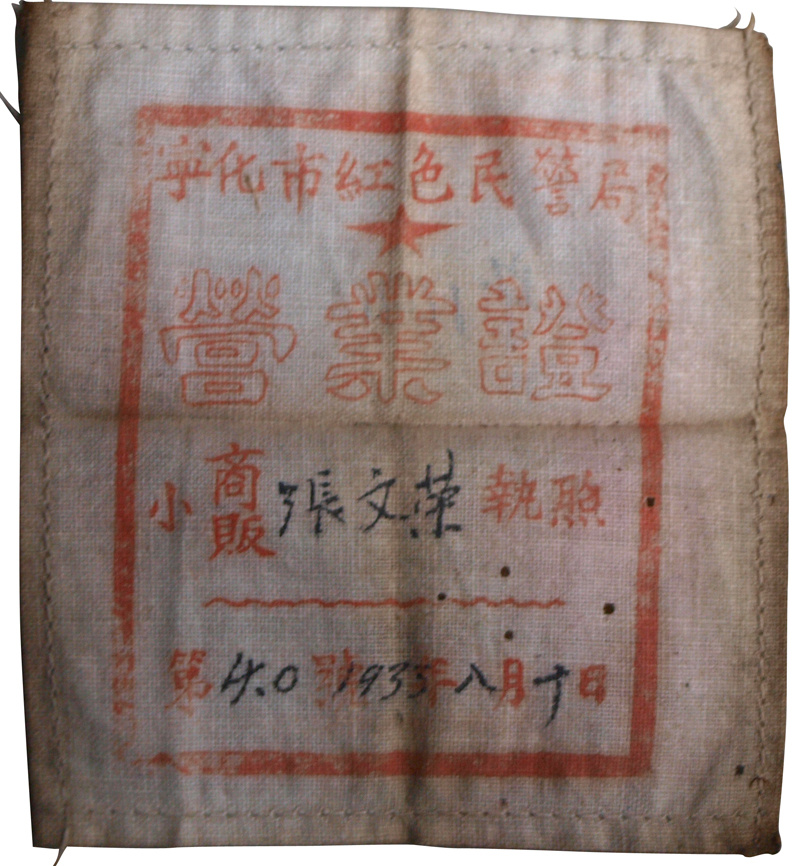 寧化市紅色民警局
營業證
小商販張文荣執照
第40號1935年八月十日